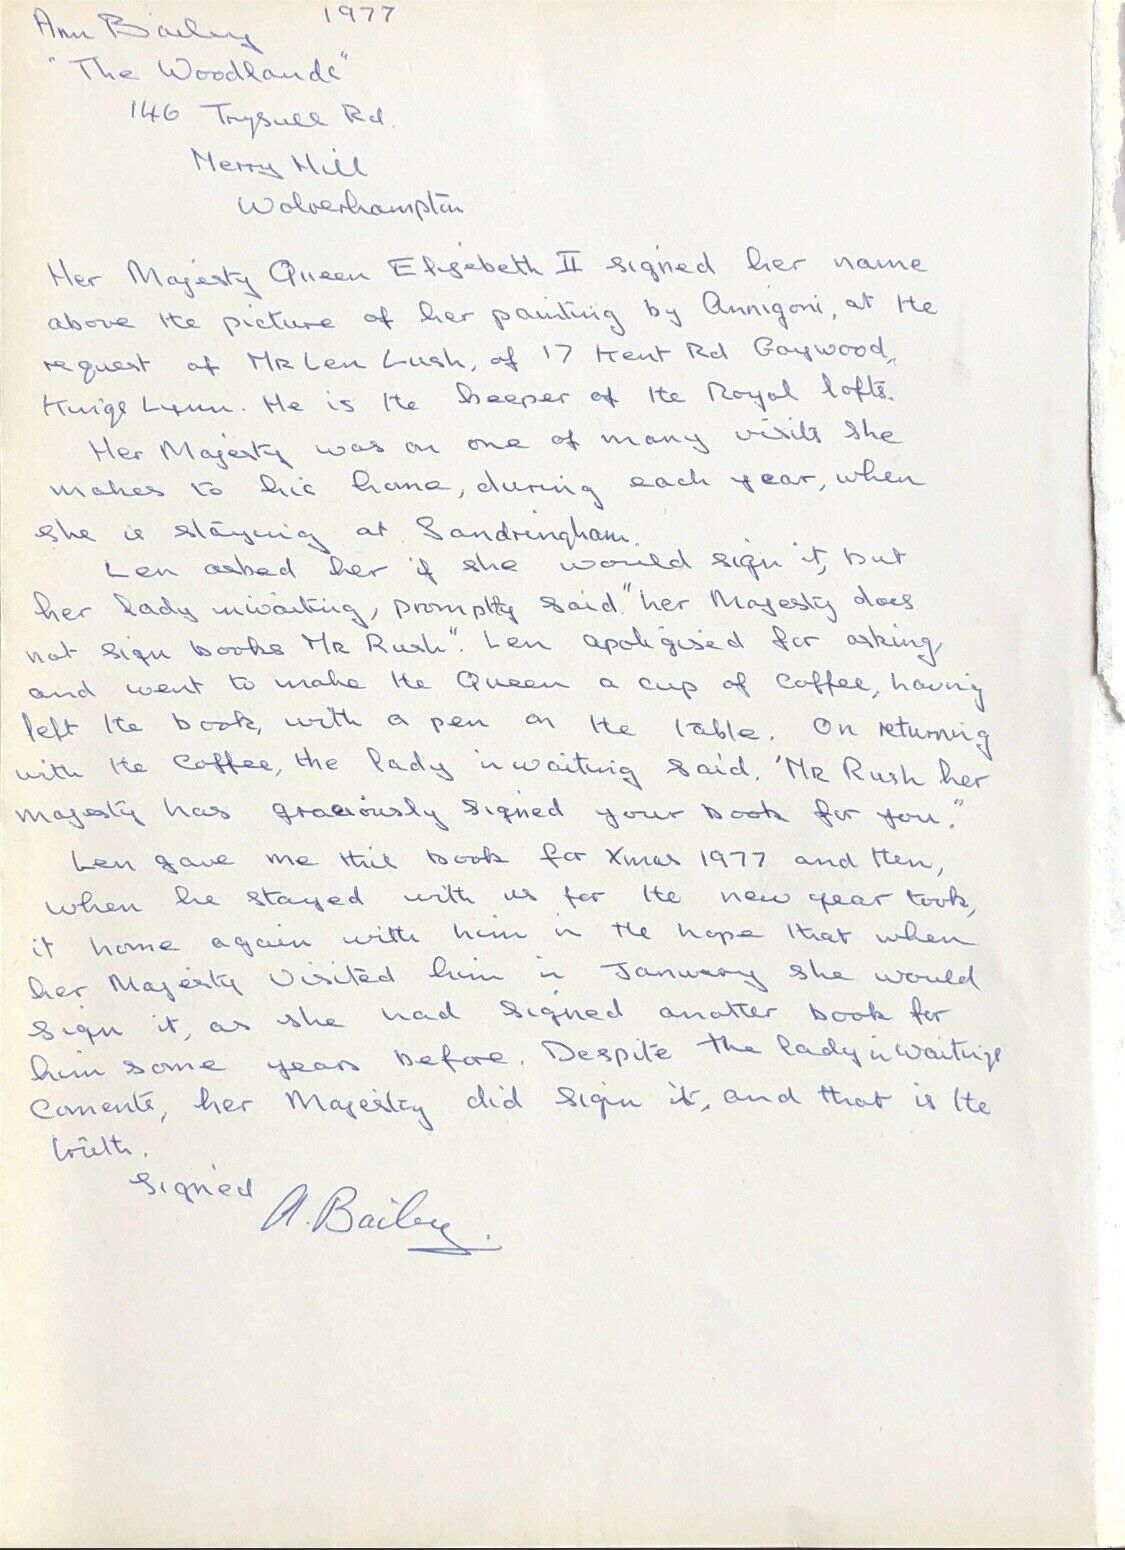 Ann Bailey 1977
"The Woodlands"
146 Trysull Rd.
Merry Hill
Wolverhampton
Her Majesty Queen Elizabeth II signed her name
above the picture of her painting by Annigoni, at the
request of Mr Len Lush, of 17 Kent Rd Gaywood,
Kings Lynn. He is the keeper of the Royal lofts.
Her Majesty was on one of many visits she
makes to his home, during each year, when
she is staying at Sandringham.
Len asked her if she would sign it, but
her lady inwaiting, promptly said "her Majesty does
not sign books Mr Rush". Len apoligised for asking,
and went to make the Queen a cup of coffee, having
left the book, with a pen on the table. On returning
with the coffee, the lady in waiting said. "Mr Rush her
majesty has graciously signed your book for you."
Len gave me this book for Xmas 1977 and then,
when he stayed with us for the new year took,
it home again with him in the hope that when
her Majesty visited him in January she would
sign it, as she had signed another book for
him some years before. Despite the lady in waitings
Coments, her Majesty did sign it, and that is the
truth.
Signed A. Bailey.